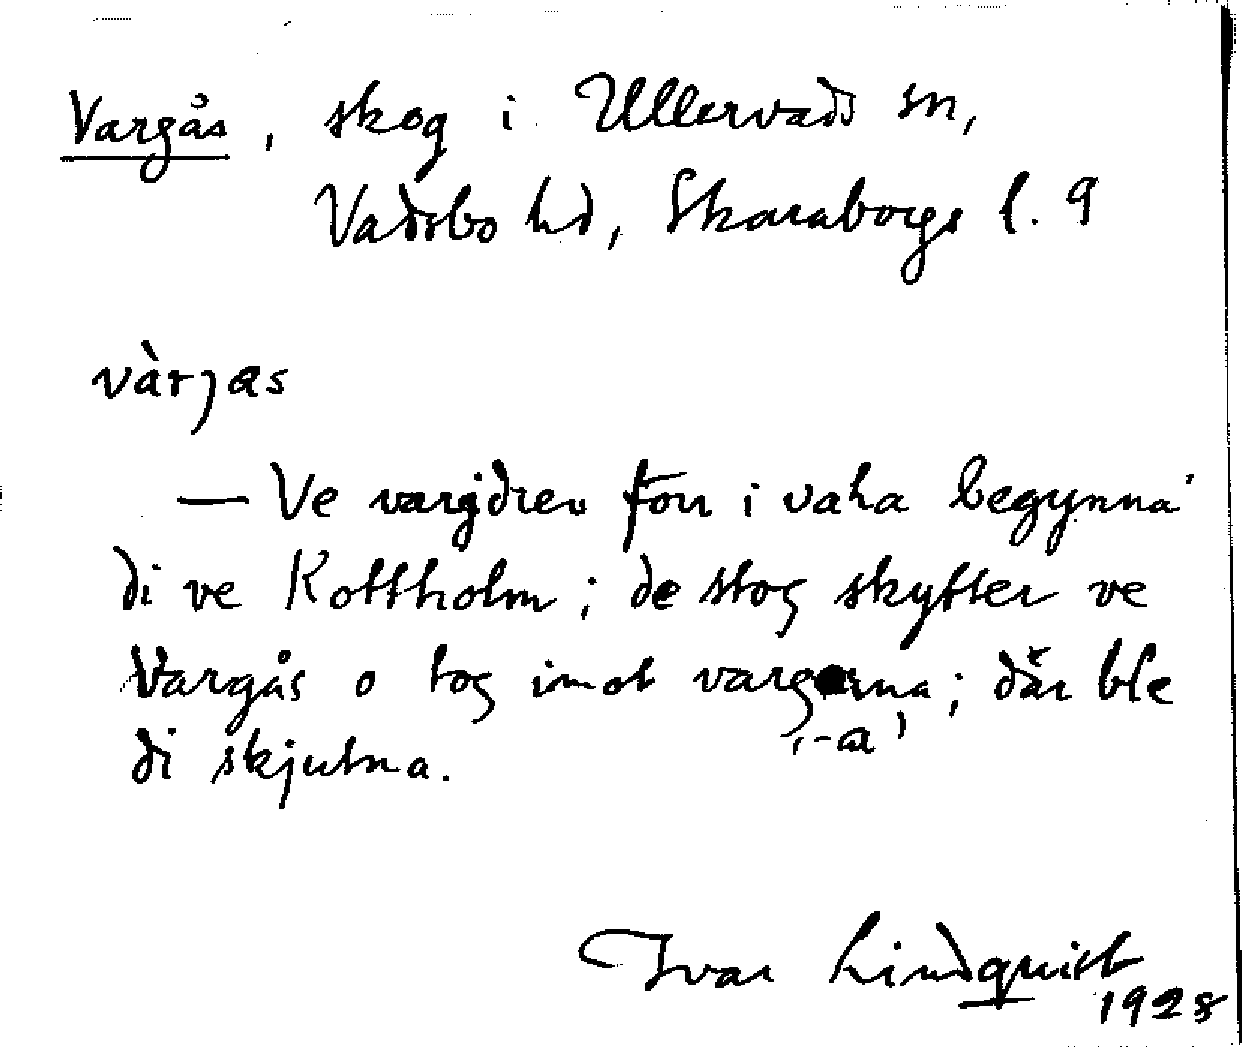 Vargås, skog i Ullervads sn,
Vadsbo hd, Skaraborgs l. 9
vàrjas
— Ve vargdrev förr i vaha begynna'
di ve Kottholm; de stog skytter ve
Vargås o tog imot vargarna; där ble
'-a'
di skjutna.
Ivar Lindquist
1928